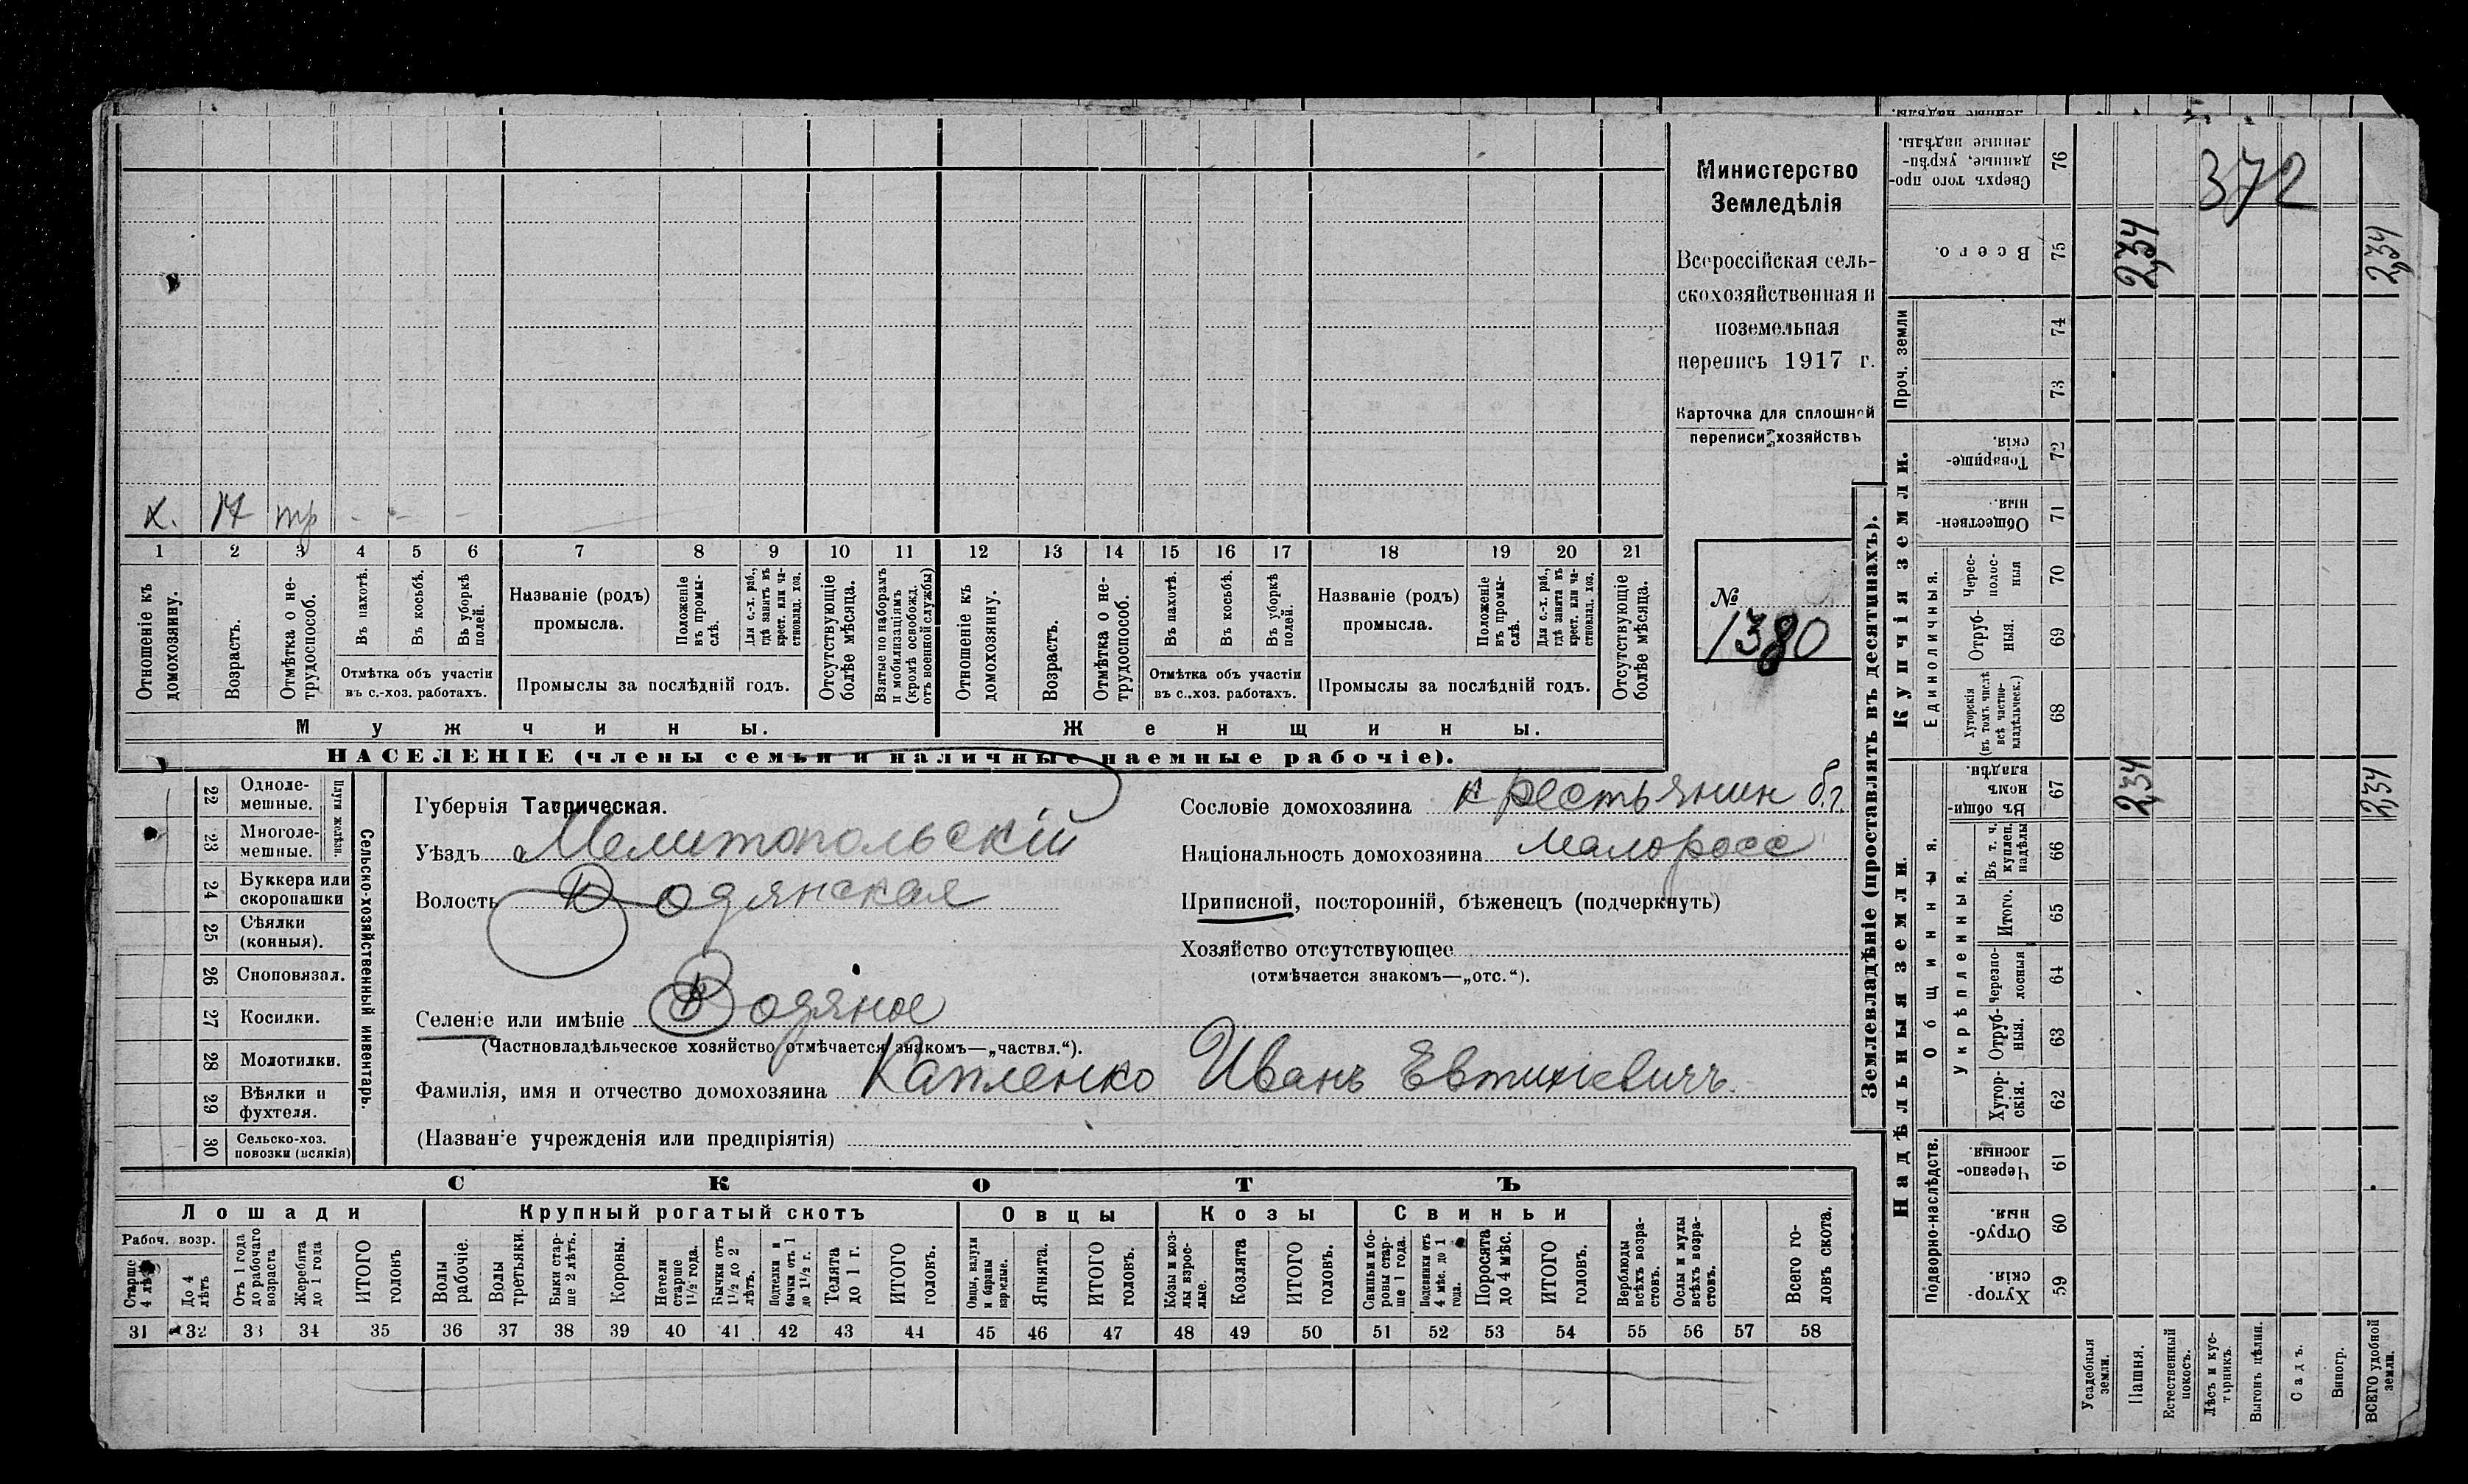 х. 17 тр - - -
1 2 3 4 5 6 7 8 9 10 11 12 13 14 15 16 17 18 19 20 21
Отношеніе къ домохозяину.
Возрастъ.
Отмѣтка о не-трудоспособ.
Въ пахотѣ.
Въ косьбѣ.
Въ уборкѣ полей.
Отмѣтка объ участіи
въ с.-хоз. работахъ.
Названіе (родъ)
промысла.
Положеніе въ промы-слѣ.
Для с.-х. раб., гдѣ занятъ въ крест. или ча-ствовлад. хоз.
Промыслы за послѣдній годъ.
Отсутствующіе болѣе мѣсяца.
Взятые по наборамъ и мобилизаціямъ (кромѣ освобожд. отъ военной службы)
Отношеніе къ домохозяину.
Возрастъ.
Отмѣтка о не-трудоспособ.
Въ пахотѣ.
Въ косьбѣ.
Въ уборкѣ полей.
Отмѣтка объ участіи
въ с.-хоз. работахъ.
Названіе (родъ)
промысла.
Положеніе въ промы-слѣ.
Для с.-х. раб., гдѣ занята въ крест. или ча-ствовлад. хоз.
Промыслы за послѣдній годъ.
Отсутствующіе болѣе мѣсяца.
Мужчины. Женщины.
НАСЕЛЕНІЕ (члены семьи и наличные наемные рабочіе).
Министерство
Земледѣлія
Всероссійская сель-
скохозяйственная и
поземельная
перепись 1917 г.
Карточка для сплошной
переписи хозяйствъ
№
1380
22 Одноле-мешные.
23 Многоле-мешные.
Плуги желѣзн.
24 Буккера или скоропашки
25 Сѣялки (конныя).
26 Сноповязал.
27 Косилки.
28 Молотилки.
29 Вѣялки и фухтеля.
30 Сельско-хоз. повозки (всякія)
Сельско-хозяйственный инвентарь.
Губернія Таврическая.
Уѣздъ Мелитопольскій
Волость Водянская
Селеніе или имѣніе Водяное
(Частновладѣльческое хозяйство отмѣчается знакомъ—„частвл.“).
Фамилія, имя и отчество домохозяина Капленко Иванъ Евтихіевичъ.
(Названіе учрежденія или предпріятія)
Сословіе домохозяина крестьянин б.г.
Національность домохозяина малоросс
Приписной, посторонній, бѣженецъ (подчеркнуть)
Хозяйство отсутствующее
(отмѣчается знакомъ—„отс.“).
СКОТЪ
Лошади Крупный рогатый скотъ Овцы Козы Свиньи
Рабоч. возр.
Старше 4 лѣтъ
До 4 лѣтъ
Отъ 1 года до рабочаго возраста
Жеребята до 1 года
ИТОГО головъ
Волы рабочіе.
Волы третьяки.
Быки стар-ше 2 лѣтъ.
Коровы.
Нетели старше 1½ года.
Бычки отъ 1½ до 2 лѣтъ.
Подтелки и бычки отъ 1 до 1½ г.
Телята до 1 г.
ИТОГО головъ.
Овцы, валухи и бараны взрослые.
Ягнята.
ИТОГО головъ.
Козы и коз-лы взрос-лые.
Козлята
ИТОГО головъ.
Свиньи и бо-ровы стар-ше 1 года.
Подсвинки отъ 4 мѣс. до 1 года.
Поросята до 4 мѣс.
ИТОГО головъ.
Верблюды всѣхъ возра-стовъ.
Ослы и мулы всѣхъ возра-стовъ.
Всего го-ловъ скота.
31 32 33 34 35 36 37 38 39 40 41 42 43 44 45 46 47 48 49 50 51 52 53 54 55 56 57 58
Землевладѣніе (проставлять въ десятинахъ).
372
Сверхъ того про-данные, укрѣп-ленные надѣлы. 76
Всего. 75 2,34 2,34
Проч. земли
74
73
Купчія земли.
Товарище-скія. 72
Обществен-ныя. 71
Единоличныя.
Черес-полос-ныя 70
Отруб-ныя. 69
Хуторскія (въ томъ числѣ всѣ частно-владѣльческ.) 68
Надѣльныя земли.
Общинныя.
Въ общин-номъ владѣн. 67 2,34 2,34
Укрѣпленныя.
Въ т. ч. куплен. надѣлы 66
Итого. 65
Черезпо-лосныя 64
Отруб-ныя. 63
Хутор-скія. 62
Подворно-наслѣдств.
Черезпо-лосныя. 61
Отруб-ныя. 60
Хутор-скія. 59
Усадебныя земли.
Пашня.
Естественный покосъ.
Лѣсъ и кус-тарникъ.
Выгонъ цѣлин.
Садъ.
Виногр.
ВСЕГО удобной земли.